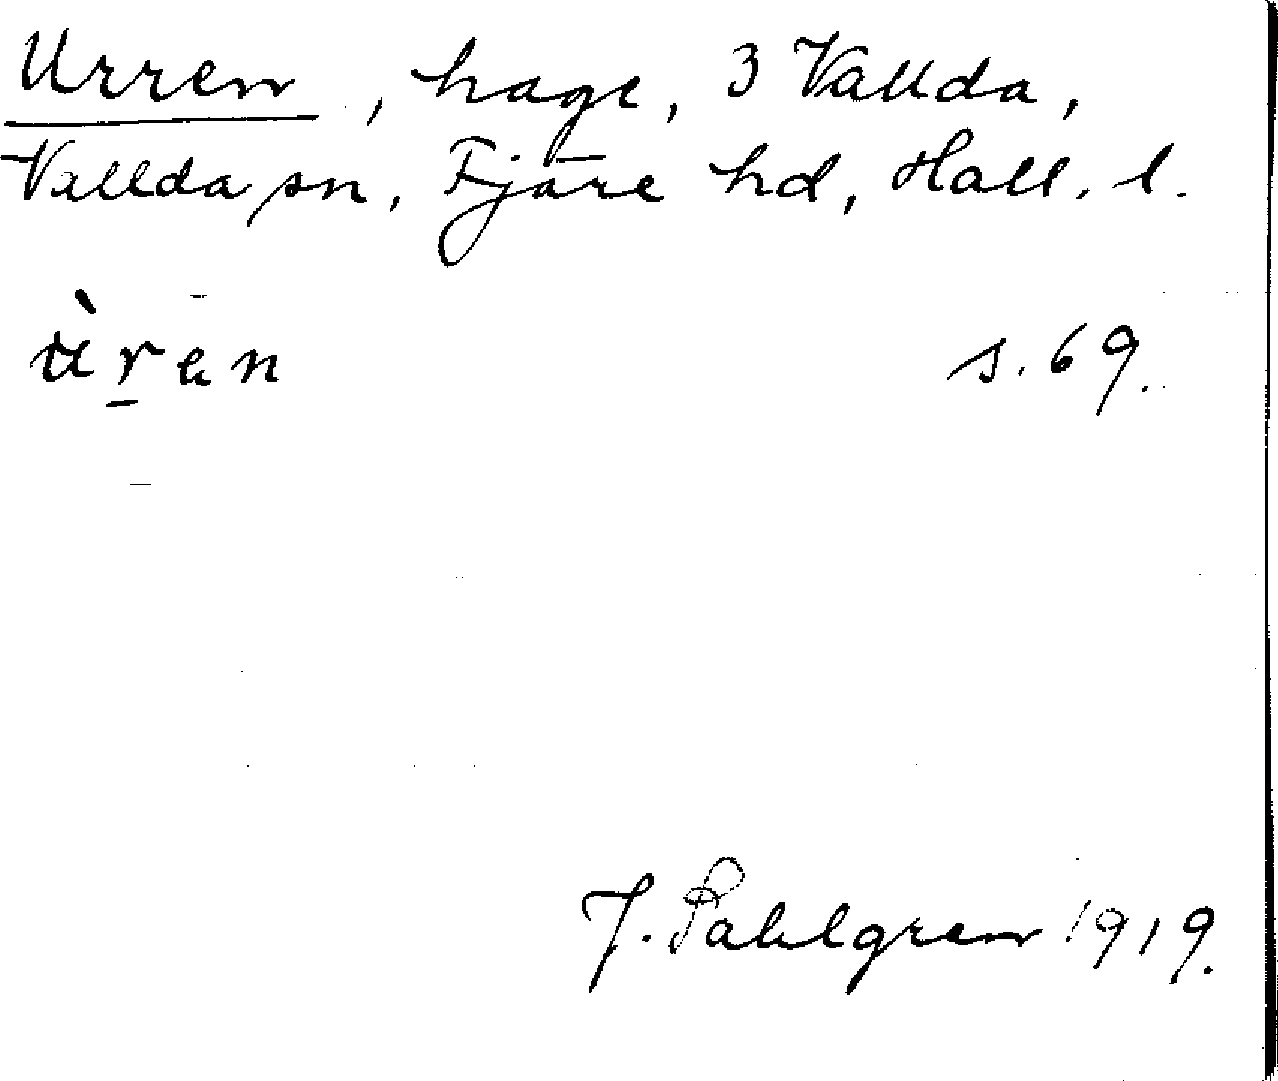 Urren, hage, 3 Vallda,
Vallda sn, Fjäre hd, Hall. l.
ùr̠en s. 69.
J. Sahlgren 1919.